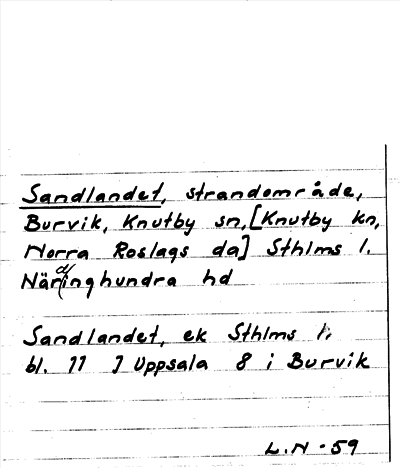 Sandlandet, strandområde,
Burvik, Knutby sn, [Knutby kn,
Norra Roslags da] Sthlms l.
Närdinghundra hd
Sandlandet, ek Sthlms l.
bl. 77 J Uppsala 8 i Burvik
L.N - 59